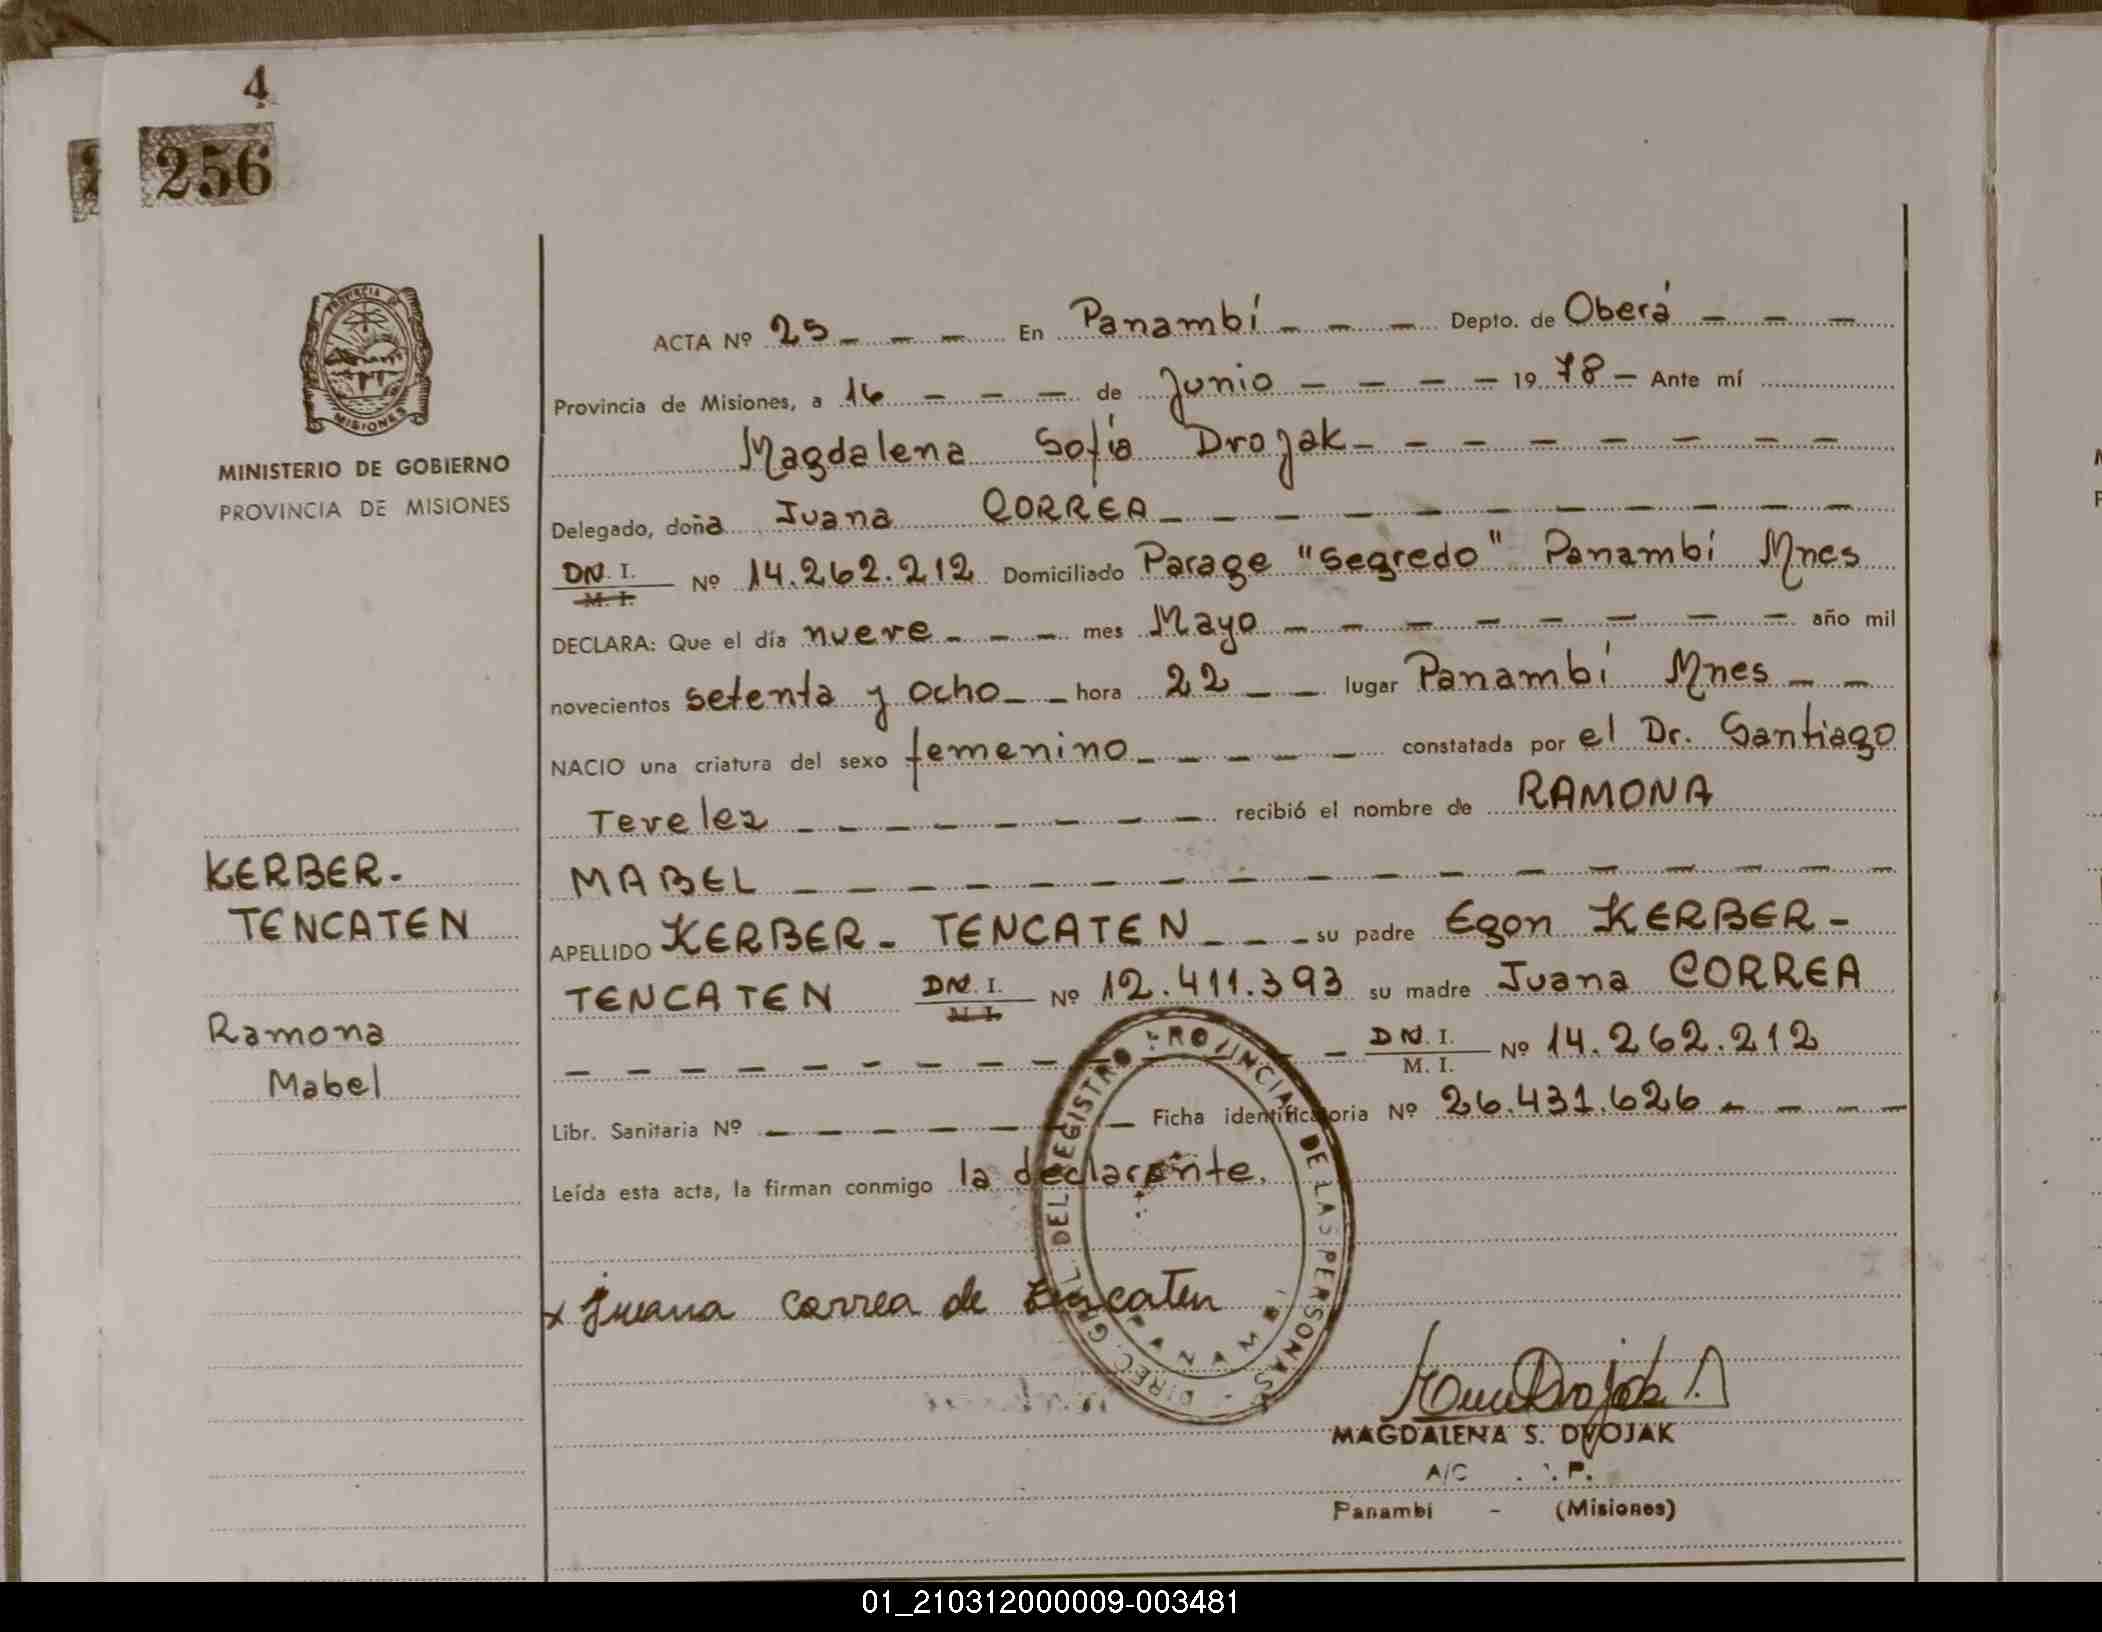 4
256
PROVINCIA DE
MISIONES
MINISTERIO DE GOBIERNO
PROVINCIA DE MISIONES
KERBER-
TENCATEN
Ramona
Mabel
ACTA Nº 25 - - - En Panambí - - - Depto. de Oberá - - -
Provincia de Misiones, a 16 - - - de Junio - - - - 1978 - Ante mí
Magdalena Sofía Dvojak - - - - - - - -
Delegado, doña Juana CORREA - - - - - - - - - -
DN. I. Nº 14.262.212 Domiciliado Parage "Segredo" Panambí Mnes
M. I.
DECLARA: Que el día nueve - - - mes Mayo - - - - - - - - año mil
novecientos setenta y ocho - - hora 22 - - lugar Panambí Mnes - -
NACIO una criatura del sexo femenino - - - - - constatada por el Dr. Santiago
Tevelez - - - - - - - recibió el nombre de RAMONA
MABEL - - - - - - - - - - - - - - -
APELLIDO KERBER - TENCATEN - - - su padre Egon KERBER -
TENCATEN DN. I. Nº 12.411.393 su madre Juana CORREA
M. I.
- - - - - - - - - - - - DN. I. Nº 14.262.212
M. I.
Libr. Sanitaria Nº - - - - - - - Ficha identificatoria Nº 26.431.626 - - - -
Leída esta acta, la firman conmigo la declarante.
x Juana Correa de Tencaten
DIREC. GRAL. DEL REGISTRO PROVINCIAL DE LAS PERSONAS -
PANAMBÍ
MAGDALENA S. DVOJAK
A/C
Panambí - (Misiones)
01_210312000009-003481